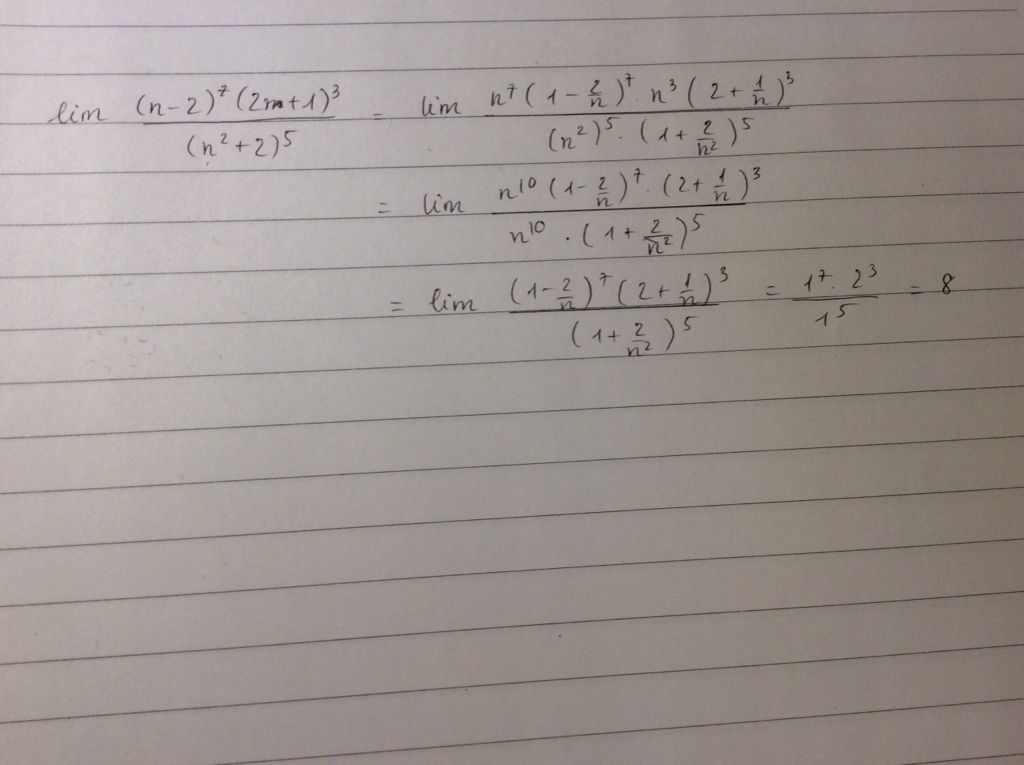 lim (n-2)^7 (2n+1)^3 / (n^2+2)^5 = lim n^7 (1 - 2/n)^7 · n^3 (2 + 1/n)^3 / (n^2)^5 · (1 + 2/n^2)^5
= lim n^10 (1 - 2/n)^7 · (2 + 1/n)^3 / n^10 · (1 + 2/n^2)^5
= lim (1 - 2/n)^7 (2 + 1/n)^3 / (1 + 2/n^2)^5 = 1^7 · 2^3 / 1^5 = 8